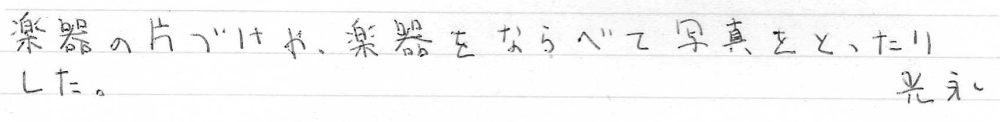 楽器の片づけや、楽器をならべて写真をとったり
した。 光永